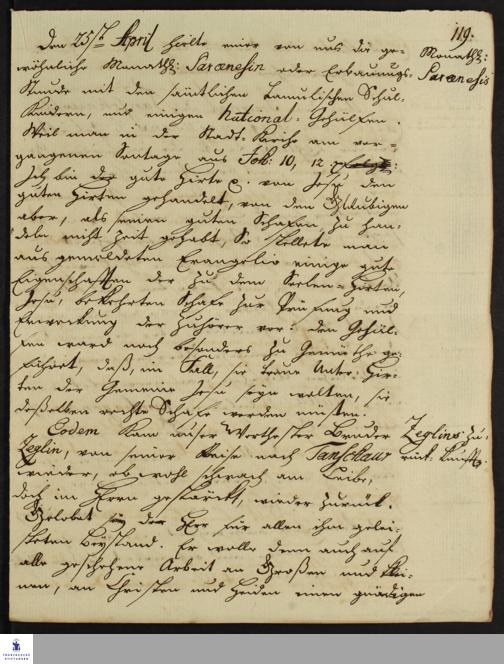 119.
Den 25st April hielte einer von uns die ge-
wöhnliche Monathl: Paraenesin oder Erbauungs-
Stunde mit den sämtlichen Tamulischen Schul-
Kindern, und einigen National-Gehülfen.
Weil man in der Stadt-Kirche am ver-
gangenen Sontage aus Joh: 10, 12
Ich bin der gute Hirte p. von Jesu dem
guten Hirten gehandelt, von den Gläubigen
aber, als seinen guten Schafen, zu han-
deln nicht Zeit gehabt, So stellete man
aus gemeldeten Evangelio einige gute
Eigenschafften der zu dem Seelen-Hirten,
Jesu, bekehrten Schafe zur Prüfung und
Erweckung der Zuhörer vor: den Gehül-
fen ward noch besonders zu Gemüthe ge-
führet, daß, im Fall, sie treue Unter-Hir-
ten der Gemeine Jesu seyn wolten, sie
desselben rechte Schafe werden müsten.
Eodem kam unser Werthester Bruder
Zeglin, von seiner Reise nach Tanschaur
wieder, ob wohl schwach am Leibe,
doch im Herrn gestärckt, wieder zurück.
Gelobet sey der HErr für allen ihm gelei-
steten Beystand. Er wolle denn auch auf
alle geschehene Arbeit an Großen und Klei-
nen, an Christen und Heiden einen gnädigen
Monathl:
Paraenesis
Zeglins Zu-
rück-kunfft.
FRANCKESCHE
STIFTUNGEN